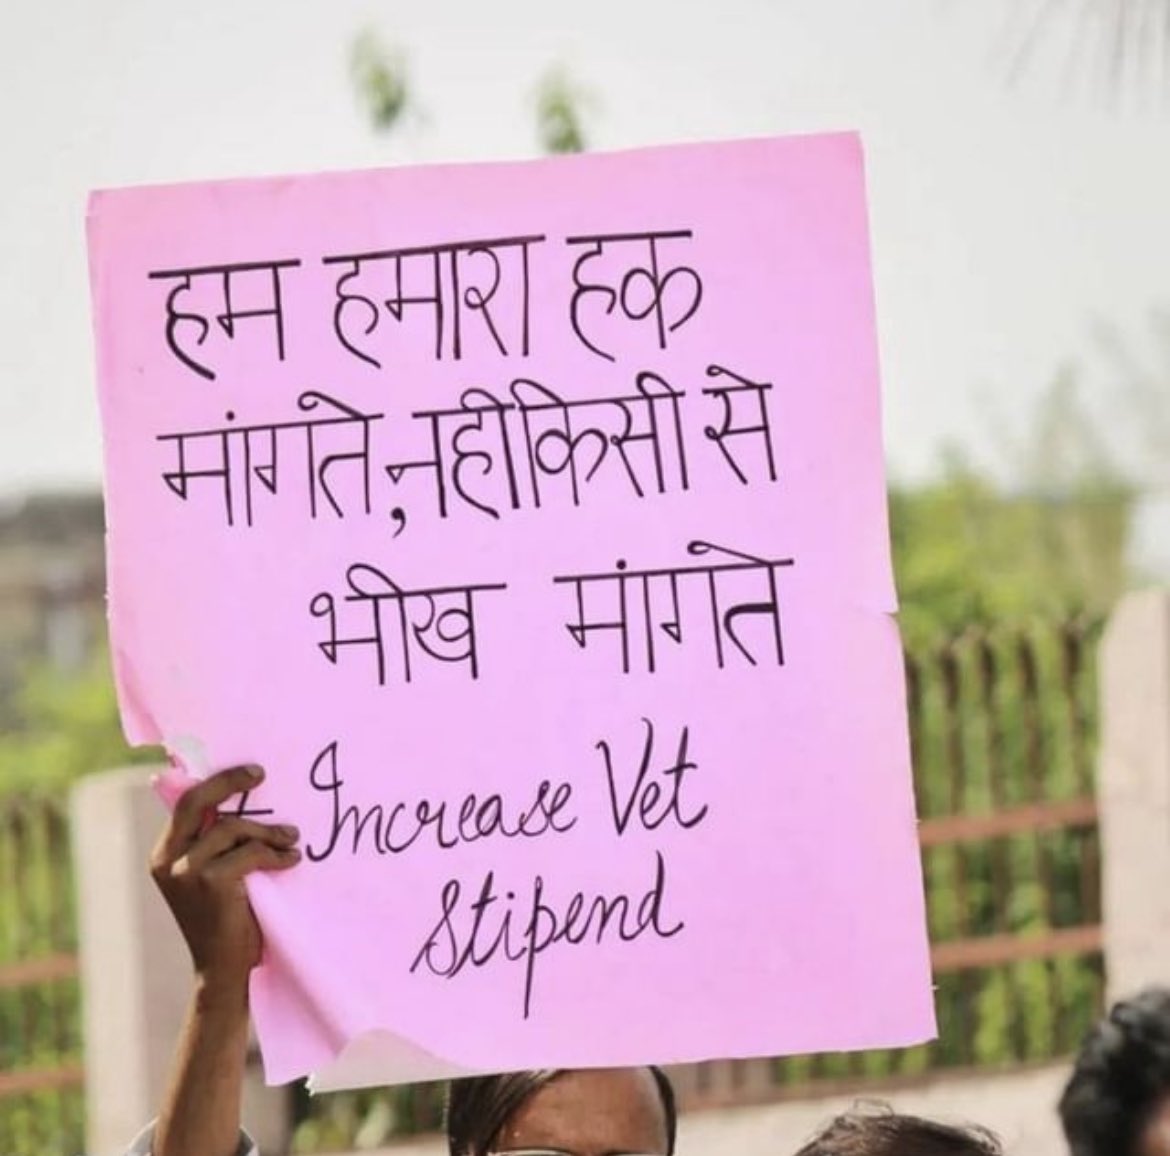 हम हमारा हक
मांगते, नही किसी से
भीख मांगते
# Increase Vet
Stipend